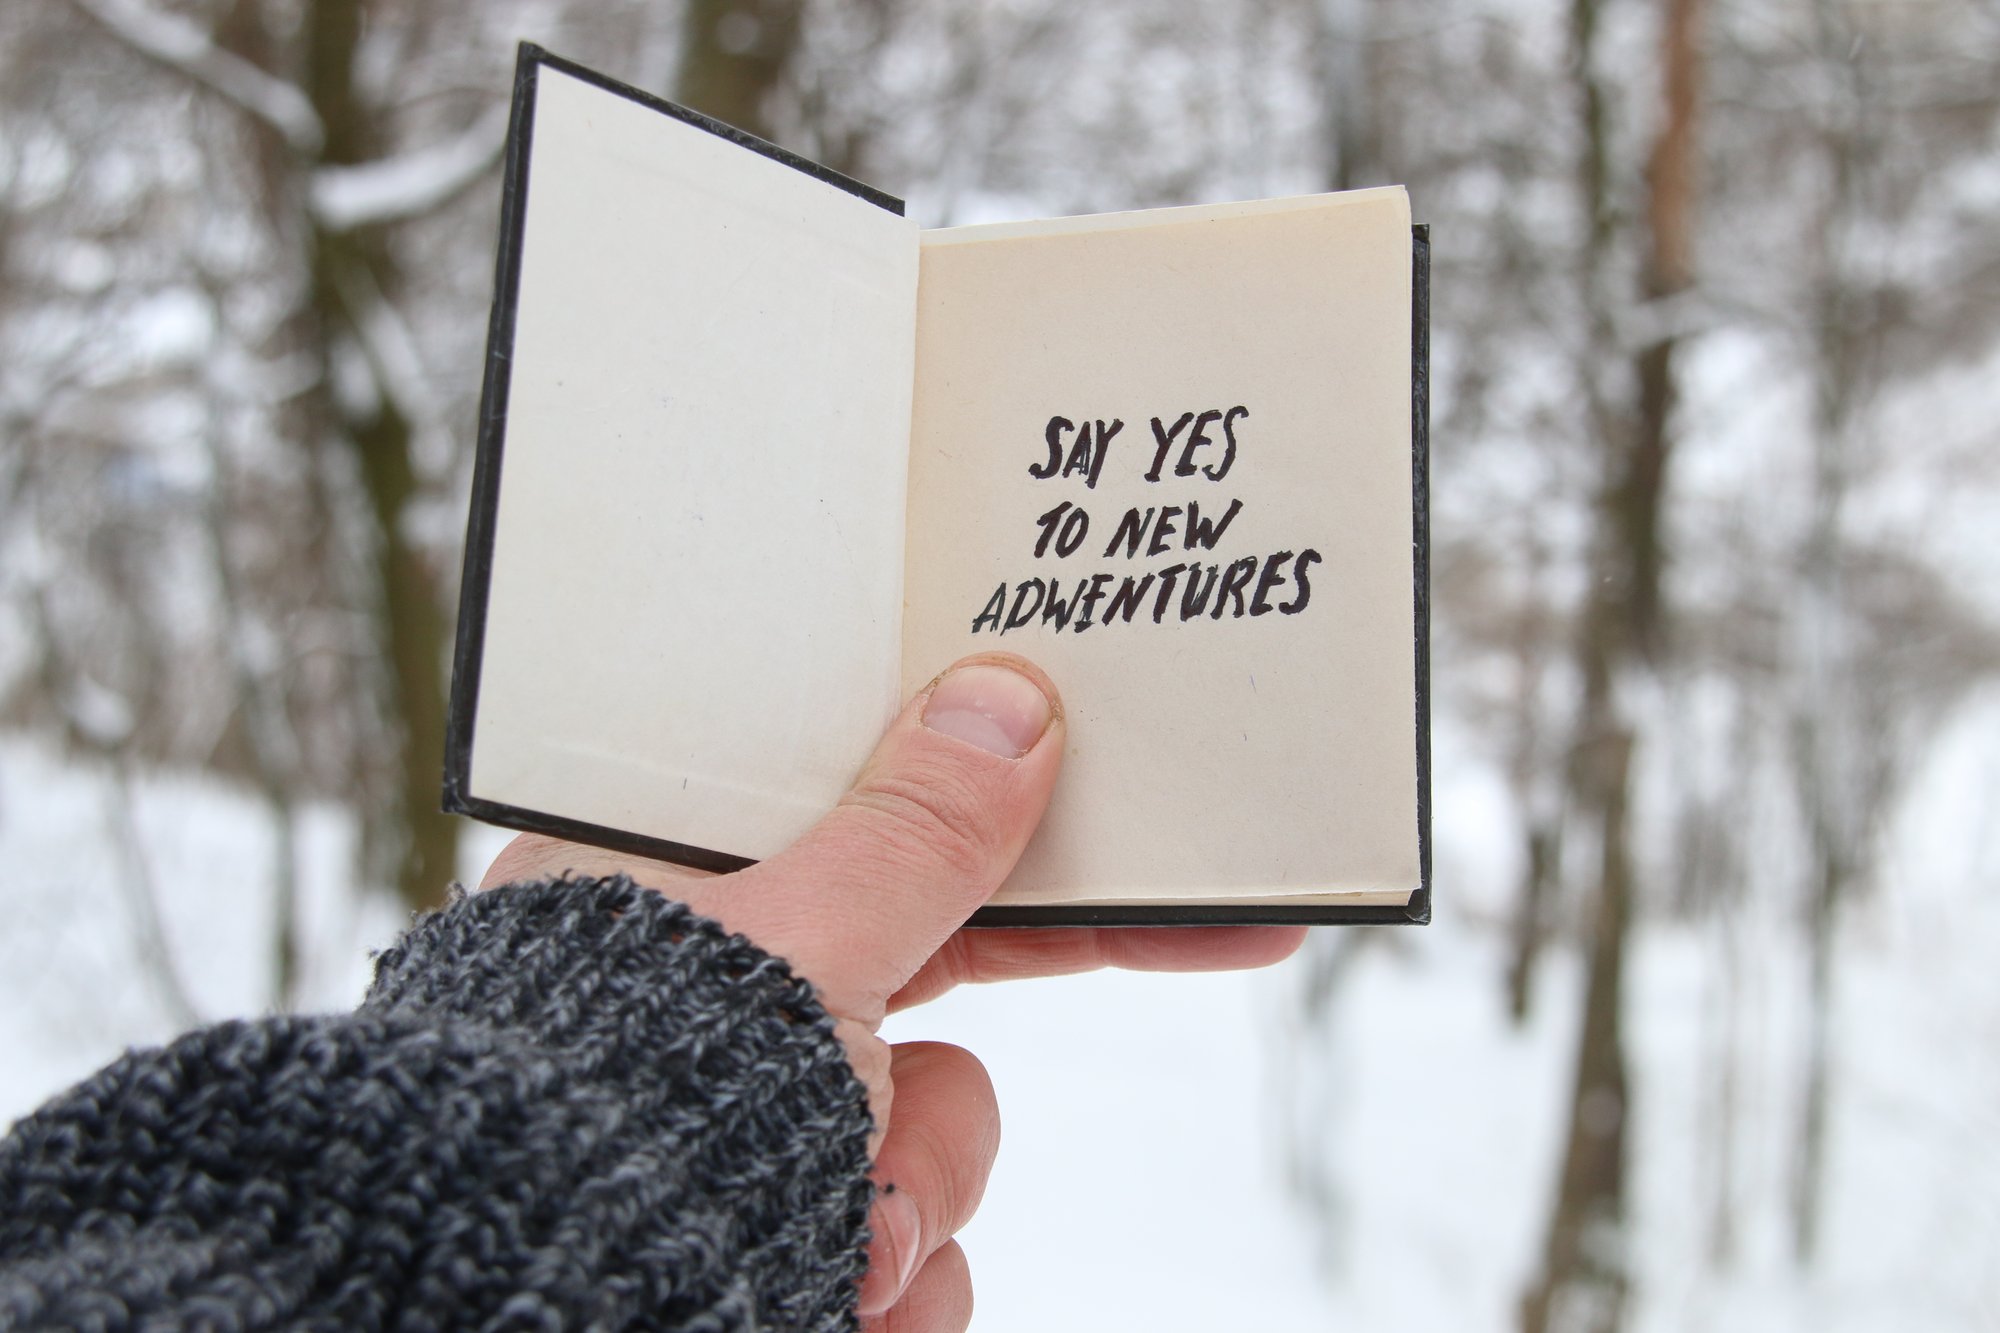 SAY YES
TO NEW
ADWENTURES